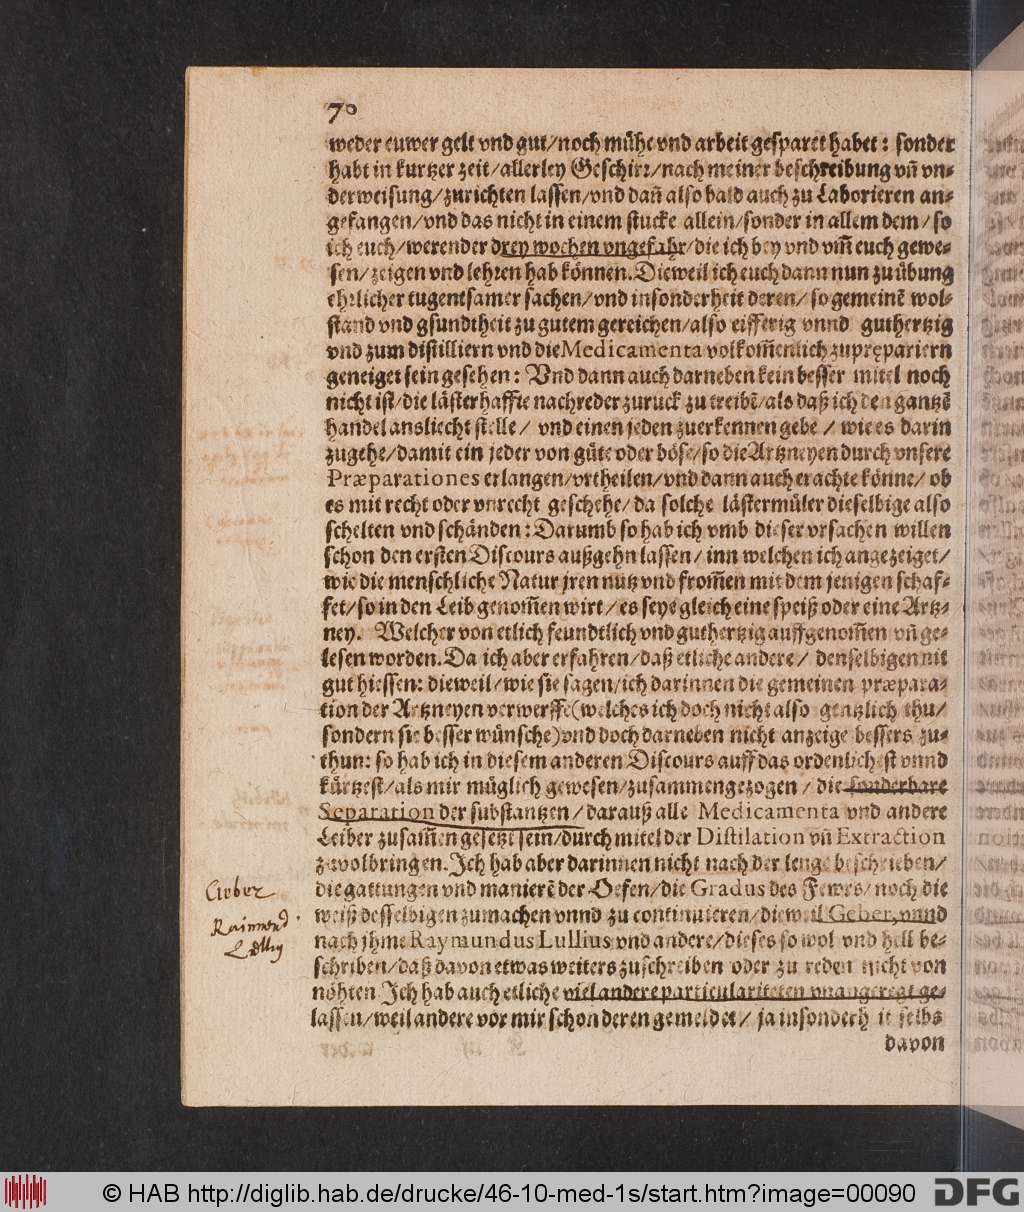 70
weder euwer gelt vnd gut/noch mühe vnd arbeit gesparet habet: sonder
habt in kurtzer zeit/allerley Geschirr/nach meiner beschreibung vñ vn-
derweisung/zurichten lassen/vnd dañ also bald auch zu Laborieren an-
gefangen/vnd das nicht in einem stucke allein/sonder in allem dem/so
ich euch/werender drey wochen vngefahr/die ich bey vnd vm̃ euch gewe-
sen/zeigen vnd lehren hab können. Dieweil ich euch dann nun zu übung
ehrlicher tugentsamer sachen/vnd insonderheit deren/so gemeinẽ wol-
stand vnd gsundtheit zu gutem gereichen/also eifferig vnnd guthertzig
vnd zum distilliern vnd die Medicamenta volkom̃enlich zu prępariern
geneiget sein gesehen: Vnd dann auch darneben kein besser mitel noch
nicht ist/die lästerhaffte nachreder zuruck zu treibẽ/als daß ich den gantzẽ
handel ans liecht stelle/ vnd einen jeden zuerkennen gebe/ wie es darin
zugehe/damit ein jeder von güte oder böse/so die Artzneyen durch vnsere
Præparationes erlangen/vrtheilen/vnd dann auch erachte könne/ ob
es mit recht oder vnrecht geschehe/da solche lästermüler dieselbige also
schelten vnd schänden: Darumb so hab ich vmb dieser vrsachen willen
schon den ersten Discours außgehn lassen/ inn welchen ich angezeiget/
wie die menschliche Natur jren nutz vnd from̃en mit dem jenigen schaf-
fet/so in den Leib genom̃en wirt/es seye gleich eine speiß oder eine Artz-
ney. Welcher von etlich feundtlich vnd guthertzig auffgenom̃en vñ ge-
lesen worden. Da ich aber erfahren/daß etliche andere/ denselbigen nit
gut hiessen: dieweil/wie sie sagen/ich darinnen die gemeinen præpara-
tion der Artzneyen verwerffe(welches ich doch nicht also gentzlich thu/
sondern sie besser wünsche)vnd doch darneben nicht anzeige bessers zu-
thun: so hab ich in diesem anderen Discours auff das ordenlichest vnnd
kürtzest/als mir müglich gewesen/zusammengezogen/ die sonderbare
Separation der substantzen/darauß alle Medicamenta vnd andere
Leiber zusam̃en gesetzt sein/durch mitel der Distilation vñ Extraction
zevolbringen. Ich hab aber darinnen nicht nach der lenge beschrieben/
die gattungen vnd manierẽ der Oefen/die Gradus des Fewrs/noch die
weiß desselbigen zumachen vnnd zu continuieren/dieweil Geber, vnnd
nach jhme Raymundus Lullius vnd andere/dieses so wol vnd hell be-
schriben/daß davon etwas weiters zuschreiben oder zu reden nicht von
nöhten. Ich hab auch etliche viel andere particulariteten vnangeregt ge-
lassen/weil andere vor mir schon deren gemeldet/ ja insonderh it selbs
davon
Geber
Raimund
Lully
© HAB http://diglib.hab.de/drucke/46-10-med-1s/start.htm?image=00090
DFG